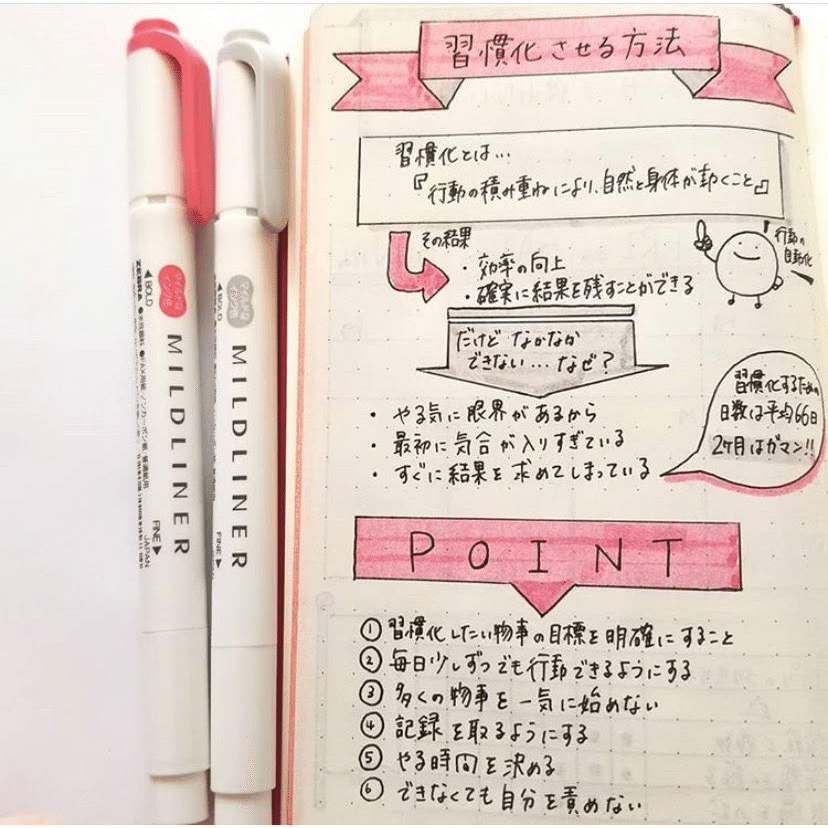 習慣化させる方法
習慣化とは…
『行動の積み重ねにより、自然と身体が動くこと』
その結果
・効率の向上
・確実に結果を残すことができる
行動の
自動化
だけど なかなか
できない…なぜ?
・やる気に限界があるから
・最初に気合が入りすぎている
・すぐに結果を求めてしまっている
習慣化するための
日数は平均66日
2ヶ月はガマン!!
POINT
① 習慣化したい物事の目標を明確にすること
② 毎日少しずつでも行動できるようにする
③ 多くの物事を一気に始めない
④ 記録を取るようにする
⑤ やる時間を決める
⑥ できなくても自分を責めない
◀BOLD
マイルドな
インク色
MILDLINER
FINE▶
JAPAN
ZEBRA
◀BOLD
マイルドな
インク色
MILDLINER
FINE▶